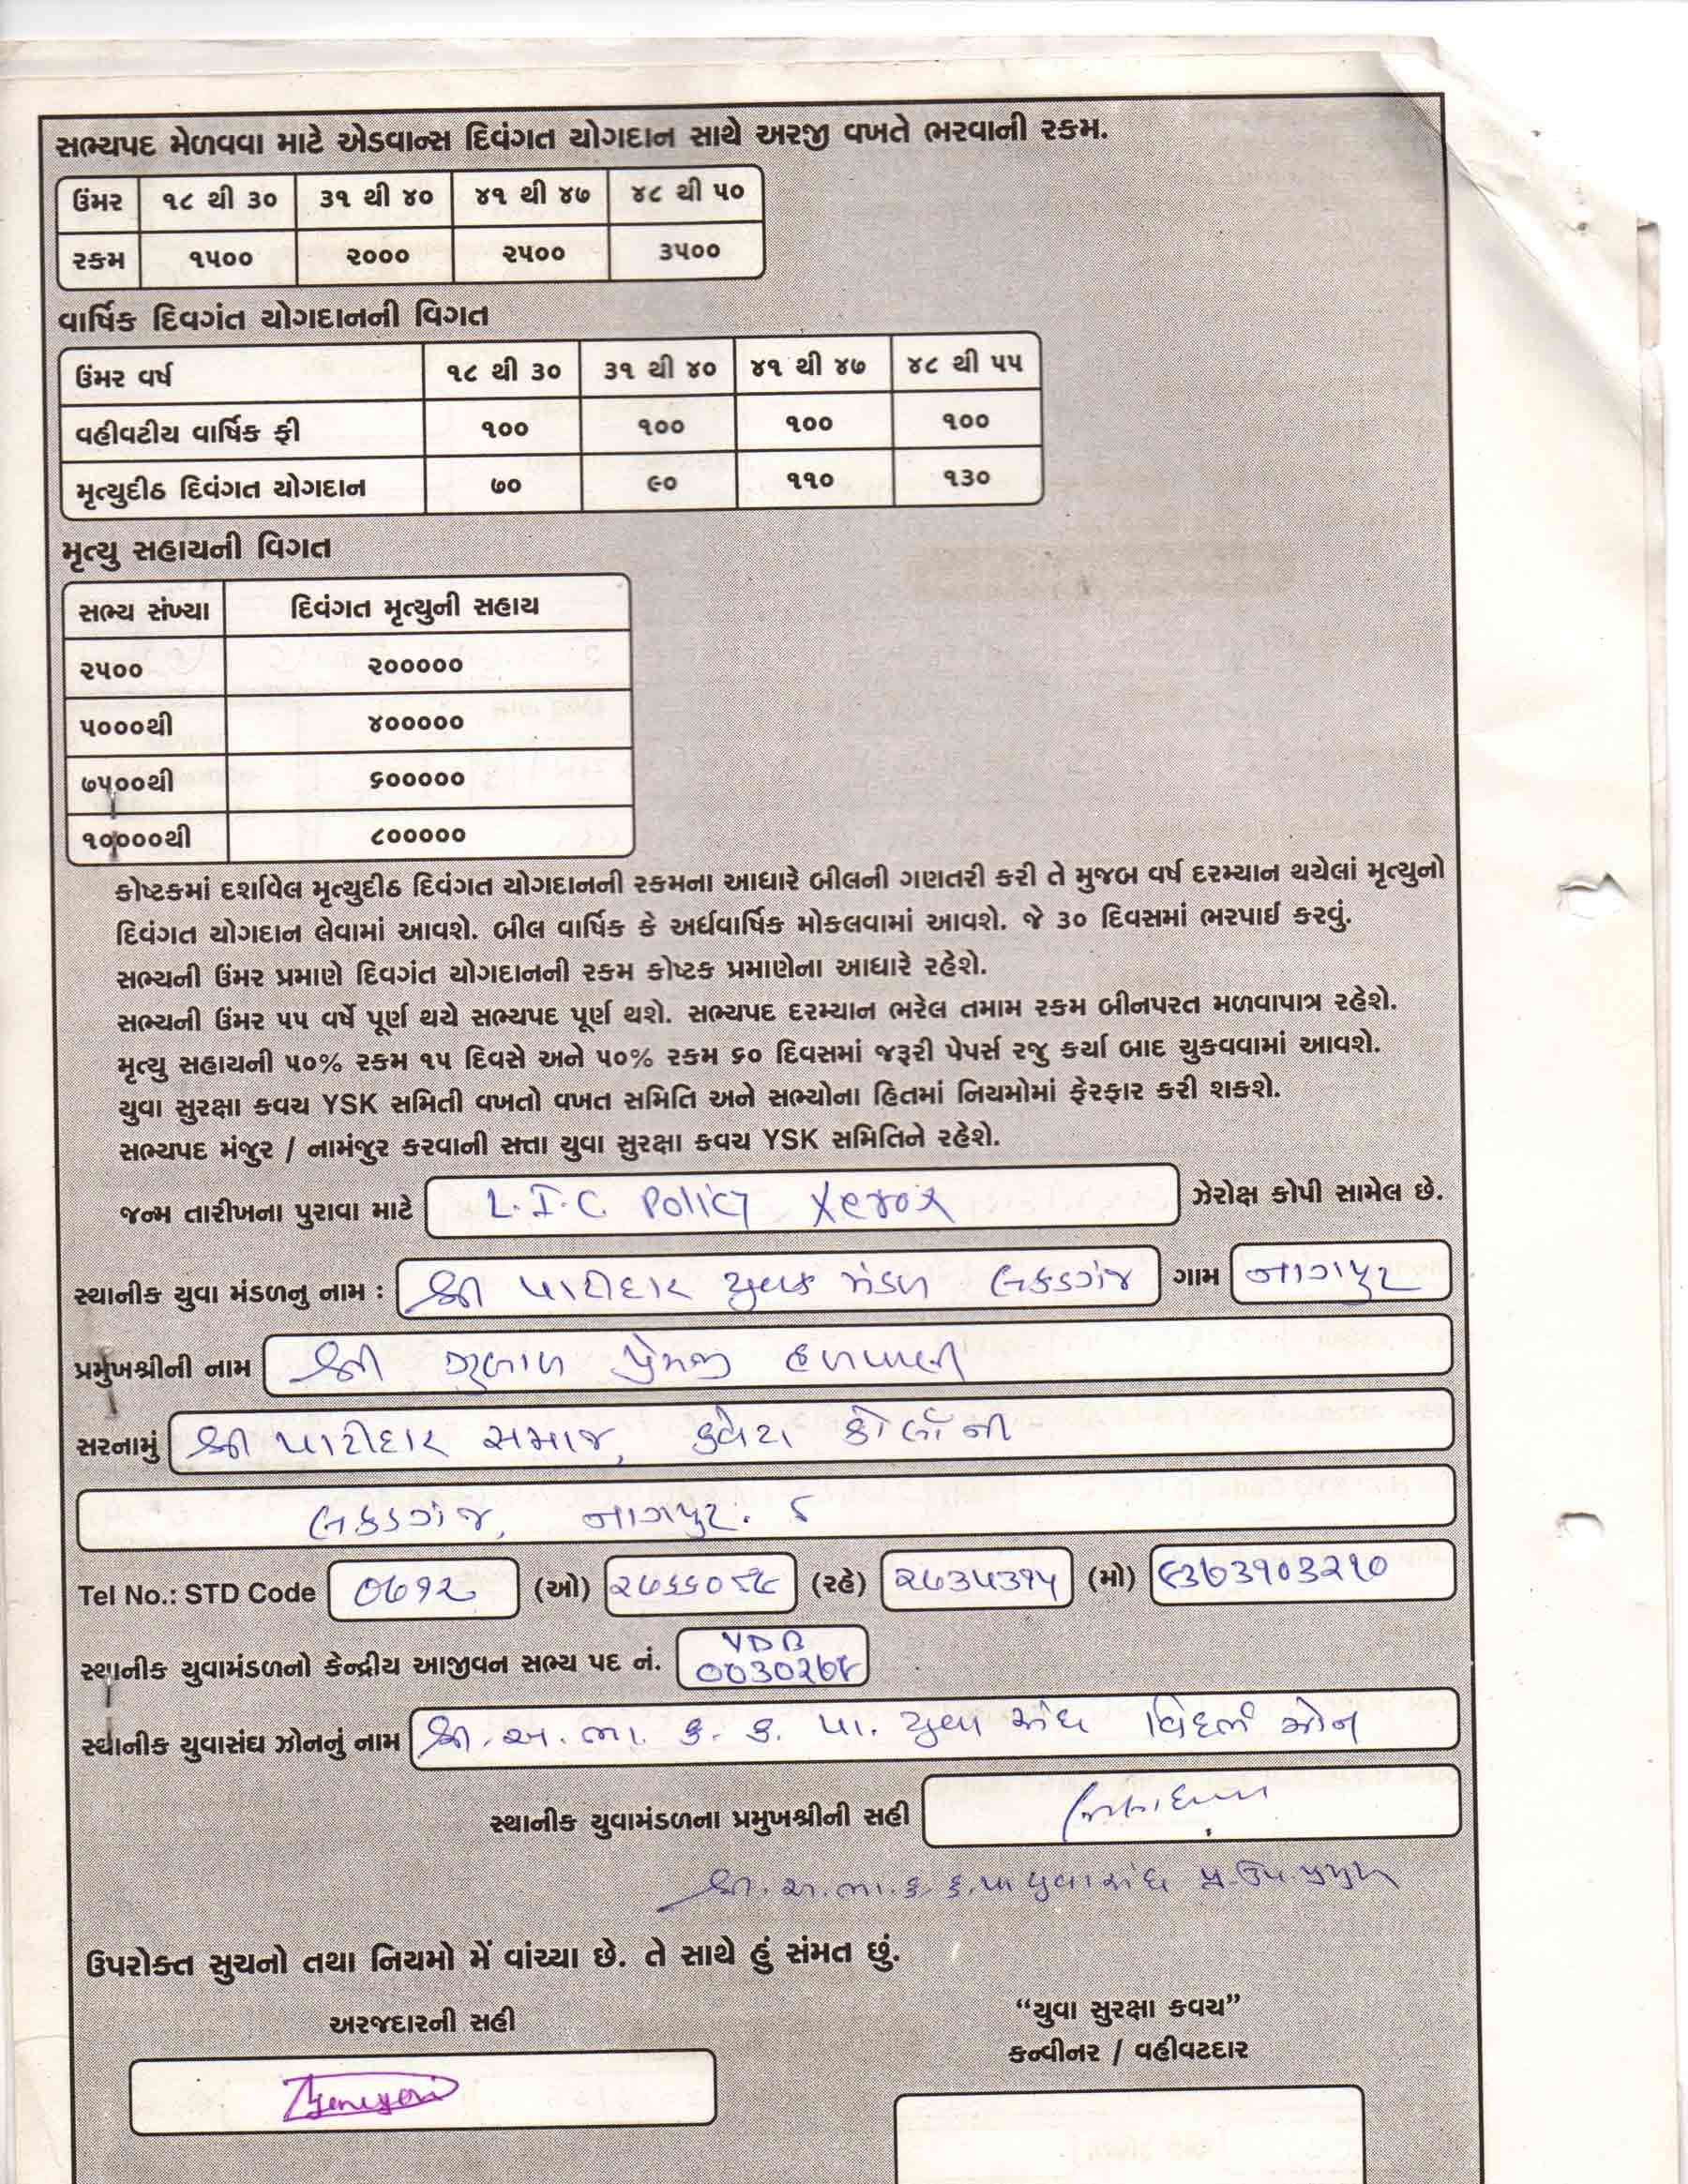 સભ્યપદ મેળવવા માટે એડવાન્સ દિવંગત યોગદાન સાથે અરજી વખતે ભરવાની રકમ.
ઉંમર ૧૮ થી ૩૦ ૩૧ થી ૪૦ ૪૧ થી ૪૭ ૪૮ થી ૫૦
રકમ ૧૫૦૦ ૨૦૦૦ ૨૫૦૦ ૩૫૦૦
વાર્ષિક દિવગંત યોગદાનની વિગત
ઉંમર વર્ષ ૧૮ થી ૩૦ ૩૧ થી ૪૦ ૪૧ થી ૪૭ ૪૮ થી ૫૫
વહીવટીય વાર્ષિક ફી ૧૦૦ ૧૦૦ ૧૦૦ ૧૦૦
મૃત્યુદીઠ દિવંગત યોગદાન ૭૦ ૯૦ ૧૧૦ ૧૩૦
મૃત્યુ સહાયની વિગત
સભ્ય સંખ્યા દિવંગત મૃત્યુની સહાય
૨૫૦૦ ૨૦૦૦૦૦
૫૦૦૦થી ૪૦૦૦૦૦
૭૫૦૦થી ૬૦૦૦૦૦
૧૦૦૦૦થી ૮૦૦૦૦૦
કોષ્ટકમાં દર્શાવેલ મૃત્યુદીઠ દિવંગત યોગદાનની રકમના આધારે બીલની ગણતરી કરી તે મુજબ વર્ષ દરમ્યાન થયેલાં મૃત્યુનો
દિવંગત યોગદાન લેવામાં આવશે. બીલ વાર્ષિક કે અર્ધવાર્ષિક મોકલવામાં આવશે. જે ૩૦ દિવસમાં ભરપાઈ કરવું.
સભ્યની ઉંમર પ્રમાણે દિવગંત યોગદાનની રકમ કોષ્ટક પ્રમાણેના આધારે રહેશે.
સભ્યની ઉંમર ૫૫ વર્ષે પૂર્ણ થયે સભ્યપદ પૂર્ણ થશે. સભ્યપદ દરમ્યાન ભરેલ તમામ રકમ બીનપરત મળવાપાત્ર રહેશે.
મૃત્યુ સહાયની ૫૦% રકમ ૧૫ દિવસે અને ૫૦% રકમ ૬૦ દિવસમાં જરૂરી પેપર્સ રજુ કર્યા બાદ ચુકવવામાં આવશે.
યુવા સુરક્ષા કવચ YSK સમિતી વખતો વખત સમિતિ અને સભ્યોના હિતમાં નિયમોમાં ફેરફાર કરી શકશે.
સભ્યપદ મંજુર / નામંજુર કરવાની સત્તા યુવા સુરક્ષા કવચ YSK સમિતિને રહેશે.
જન્મ તારીખના પુરાવા માટે L.I.C. Policy Xerox ઝેરોક્ષ કોપી સામેલ છે.
સ્થાનીક યુવા મંડળનુ નામ : શ્રી પાટીદાર યુવક મંડળ લકડગંજ ગામ નાગપુર
પ્રમુખશ્રીની નામ શ્રી ગુલાબ પ્રેમજી
સરનામું શ્રી પાટીદાર સમાજ, ક્વેટા કોલૉની
લકડગંજ, નાગપુર. ૮
Tel No.: STD Code ૦૭૧૨ (ઓ) (રહે) ૨૭૩૫૩૧૫ (મો) ૯૩૭૩૧૦૩૨૧૦
સ્થાનીક યુવામંડળનો કેન્દ્રીય આજીવન સભ્ય પદ નં. VDB
સ્થાનીક યુવાસંઘ ઝોનનું નામ શ્રી. અ. ભા. ક. ક. પા. યુવા સંઘ વિદર્ભ ઝોન
સ્થાનીક યુવામંડળના પ્રમુખશ્રીની સહી
શ્રી. અ. ભા. ક. ક. પા યુવા સંઘ પ્ર. ઉપ. પ્રમુખ
ઉપરોક્ત સુચનો તથા નિયમો મેં વાંચ્યા છે. તે સાથે હું સંમત છું.
અરજદારની સહી
“યુવા સુરક્ષા કવચ”
કન્વીનર / વહીવટદાર